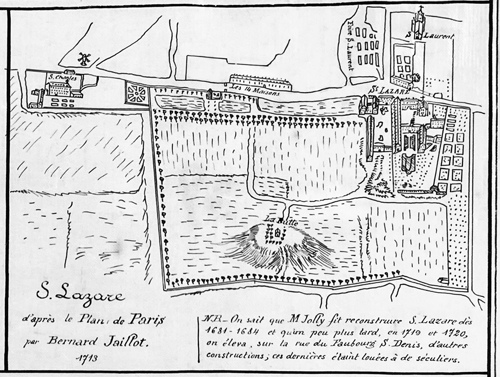 S. Laurent
Foire S. Laurent
S. Charles
Les 14 Maisons
St LAZARE
La Butte
S. Lazare
d'après le Plan de Paris
par Bernard Jaillot.
1713
N.B.- On sait que M. Jolly fit reconstruire S. Lazare dès
1681-1684 et qu'un peu plus tard, en 1719 et 1720,
on éleva, sur la rue du Faubourg S. Denis, d'autres
constructions; ces dernières étaient louées à de séculiers.